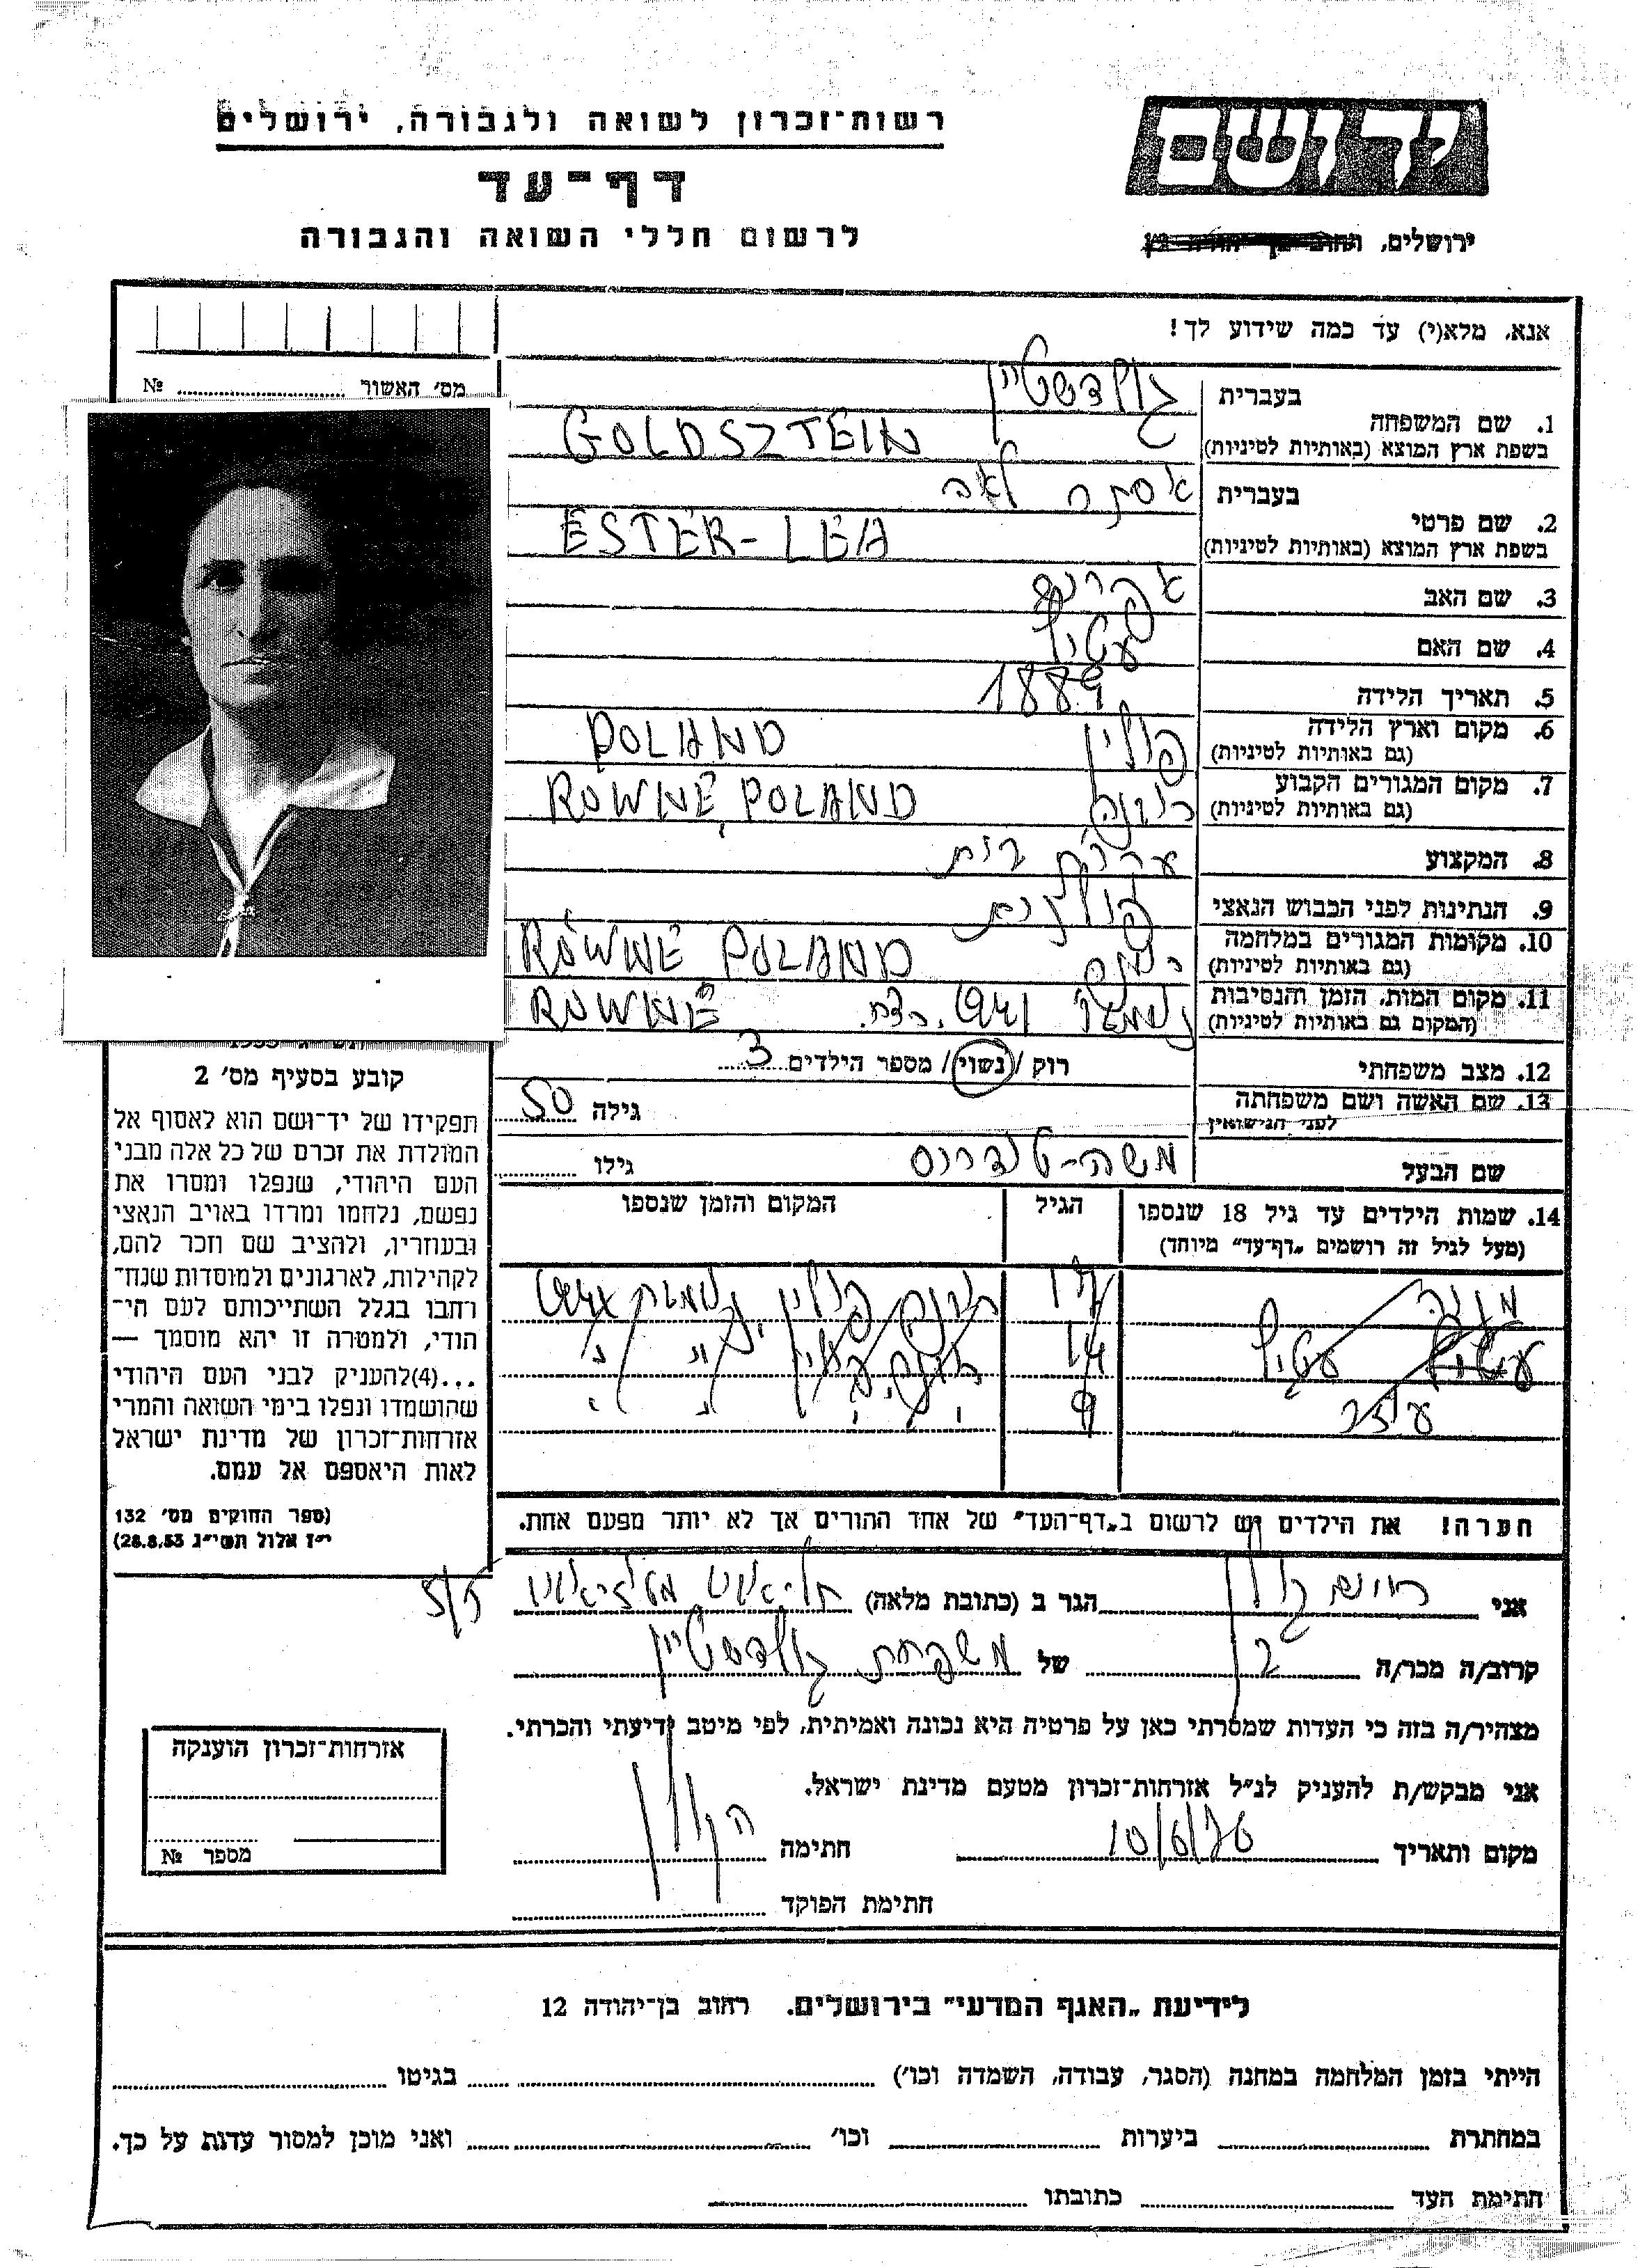 רשות־זכרון לשואה ולגבורה, ירושלים
דף־עד
לרשום חללי השואה והגבורה
יד ושם
ירושלים,
אנא, מלא(י) עד כמה שידוע לך!
מס׳ האשור № ........
1. שם המשפחה
בעברית גולדשטיין
בשפת ארץ המוצא (באותיות לטיניות) GOLDSZTEIN
2. שם פרטי
בעברית אסתר לאה
בשפת ארץ המוצא (באותיות לטיניות) ESTER-LEA
3. שם האב אפרים
4. שם האם
5. תאריך הלידה 1889
6. מקום וארץ הלידה פולין POLAND
(גם באותיות לטיניות)
7. מקום המגורים הקבוע רובנה ROWNE, POLAND
(גם באותיות לטיניות)
8. המקצוע עקרת בית
9. הנתינות לפני הכבוש הנאצי פולנית
10. מקומות המגורים במלחמה רובנה RÓWNE POLAND
(גם באותיות לטיניות)
11. מקום המות, הזמן והנסיבות 1941 ROWNE
(המקום גם באותיות לטיניות)
12. מצב משפחתי רוק / נשוי / מספר הילדים 3
13. שם האשה ושם משפחתה גילה 50
לפני הנישואין
שם הבעל משה- גילו
14. שמות הילדים עד גיל 18 שנספו הגיל המקום והזמן שנספו
(מעל לגיל זה רושמים „דף־עד” מיוחד)
17 פולין
14 " "
9 " "
הערה! את הילדים יש לרשום ב„דף־העד” של אחד ההורים אך לא יותר מפעם אחת.
קובע בסעיף מס׳ 2
תפקידו של יד־ושם הוא לאסוף אל
המולדת את זכרם של כל אלה מבני
העם היהודי, שנפלו ומסרו את
נפשם, נלחמו ומרדו באויב הנאצי
ובעוזריו, ולהציב שם וזכר להם,
לקהילות, לארגונים ולמוסדות שנח־
רבו בגלל השתייכותם לעם הי־
הודי, ולמטרה זו יהא מוסמך —
...(4)להעניק לבני העם היהודי
שהושמדו ונפלו בימי השואה והמרי
אזרחות־זכרון של מדינת ישראל
לאות היאספם אל עמם.
(ספר החוקים מס׳ 132
י״ז אלול תשי״ג 28.8.53)
אני הגר ב (כתובת מלאה) 5/5
קרוב/ה מכר/ה בן של משפחת גולדשטיין
מצהיר/ה בזה כי העדות שמסרתי כאן על פרטיה היא נכונה ואמיתית, לפי מיטב ידיעתי והכרתי.
אני מבקש/ת להעניק לנ״ל אזרחות־זכרון מטעם מדינת ישראל.
מקום ותאריך 10/6/76 חתימה
חתימת הפוקד
אזרחות־זכרון הוענקה
מספר №
לידיעת „האגף המדעי” בירושלים. רחוב בן־יהודה 12
הייתי בזמן המלחמה במחנה (הסגר, עבודה, השמדה וכו׳) בגיטו
במחתרת ביערות וכו׳ ואני מוכן למסור עדות על כך.
חתימת העד כתובתו